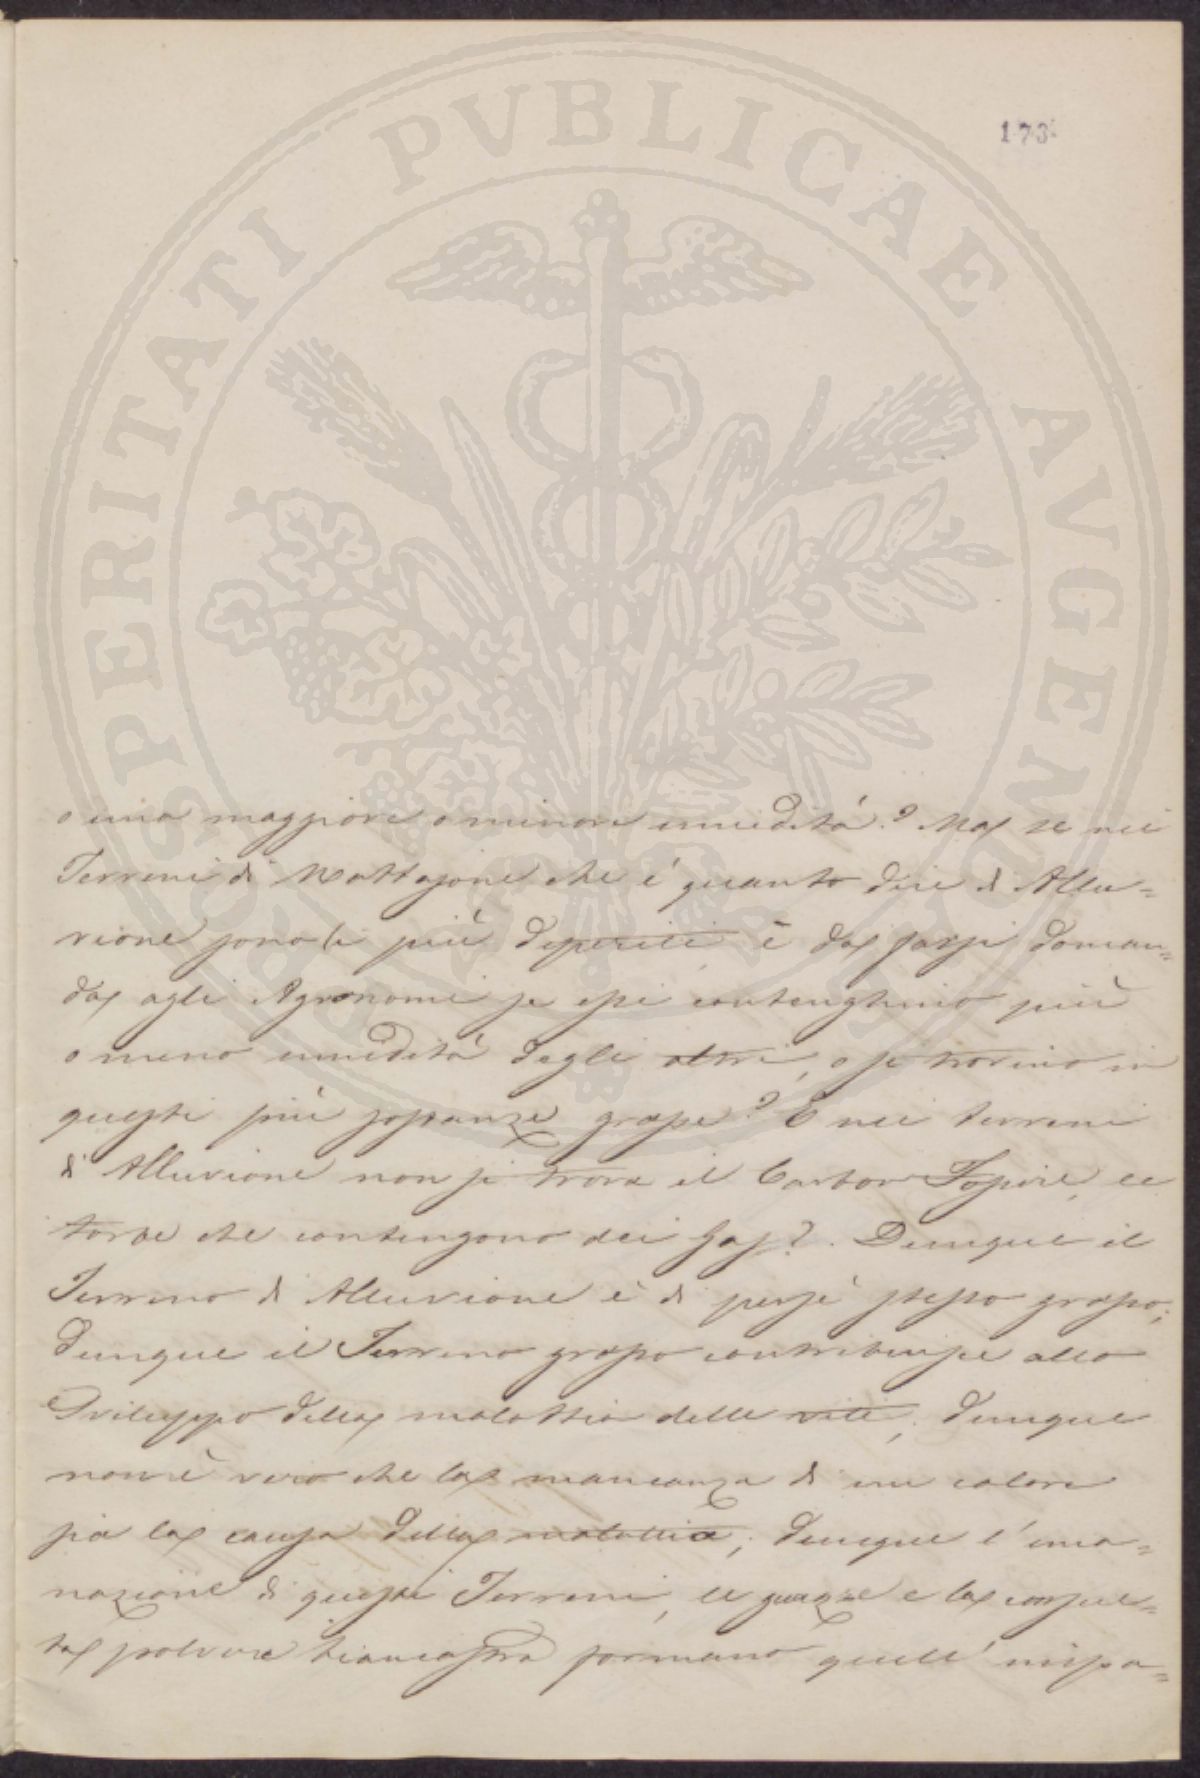 173.
PROSPERITATI PVBLICAE AVGENDAE
o una maggiore o minore umidità? Ma se nei
Terreni di Mattajone che è quanto dire di Allu=
vione sono li più deperiti è da farsi doman=
da agli Agronomi se essi contenghino più
o meno umidità degli altri, o se trovino in
questi più sostanze grasse? E nei terreni
di Alluvione non si trova il Carbon Fossile, le
torbe che contengono dei Gas? Dunque il
Terreno di Alluvione è di persè stesso grasso;
dunque il Terreno grasso contribuisce allo
Sviluppo della malattia delle viti; dunque
non è vero che la mancanza di un calore
sia la causa della malattia; dunque l'ema=
nazione di questi Terreni, le guazze e la consue=
ta polvere biancastra formano quell'